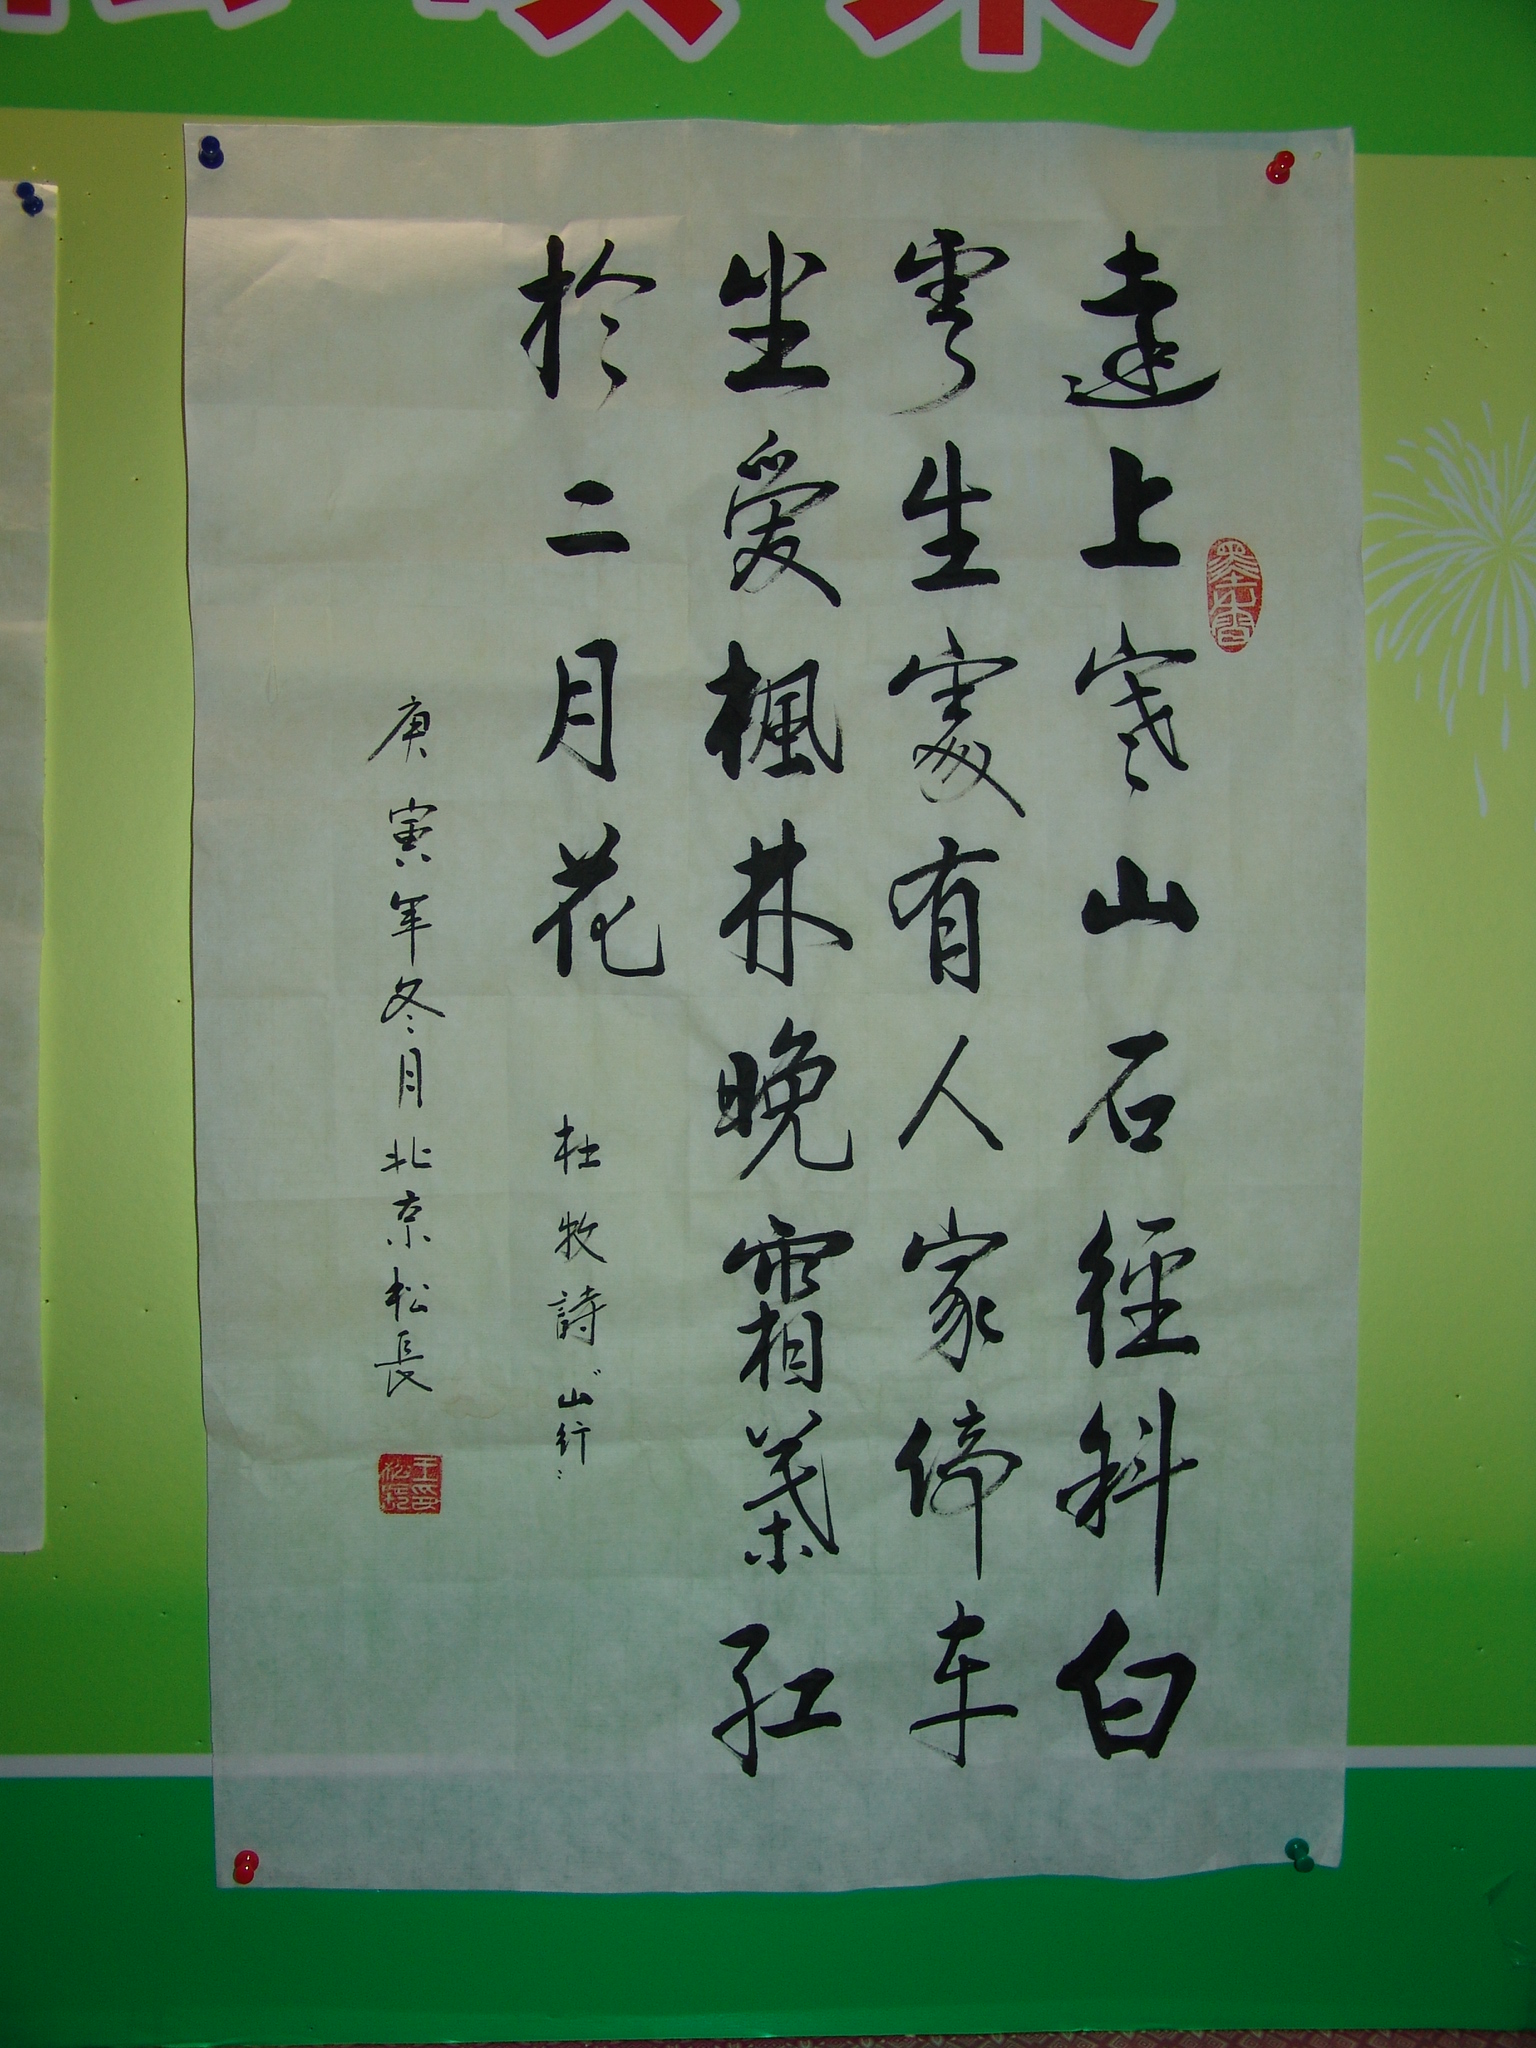 遠上寒山石徑斜白
雲生處有人家停车
坐愛楓林晚霜葉紅
於二月花 杜牧詩"山行"
庚寅年冬月北京松長
墨香